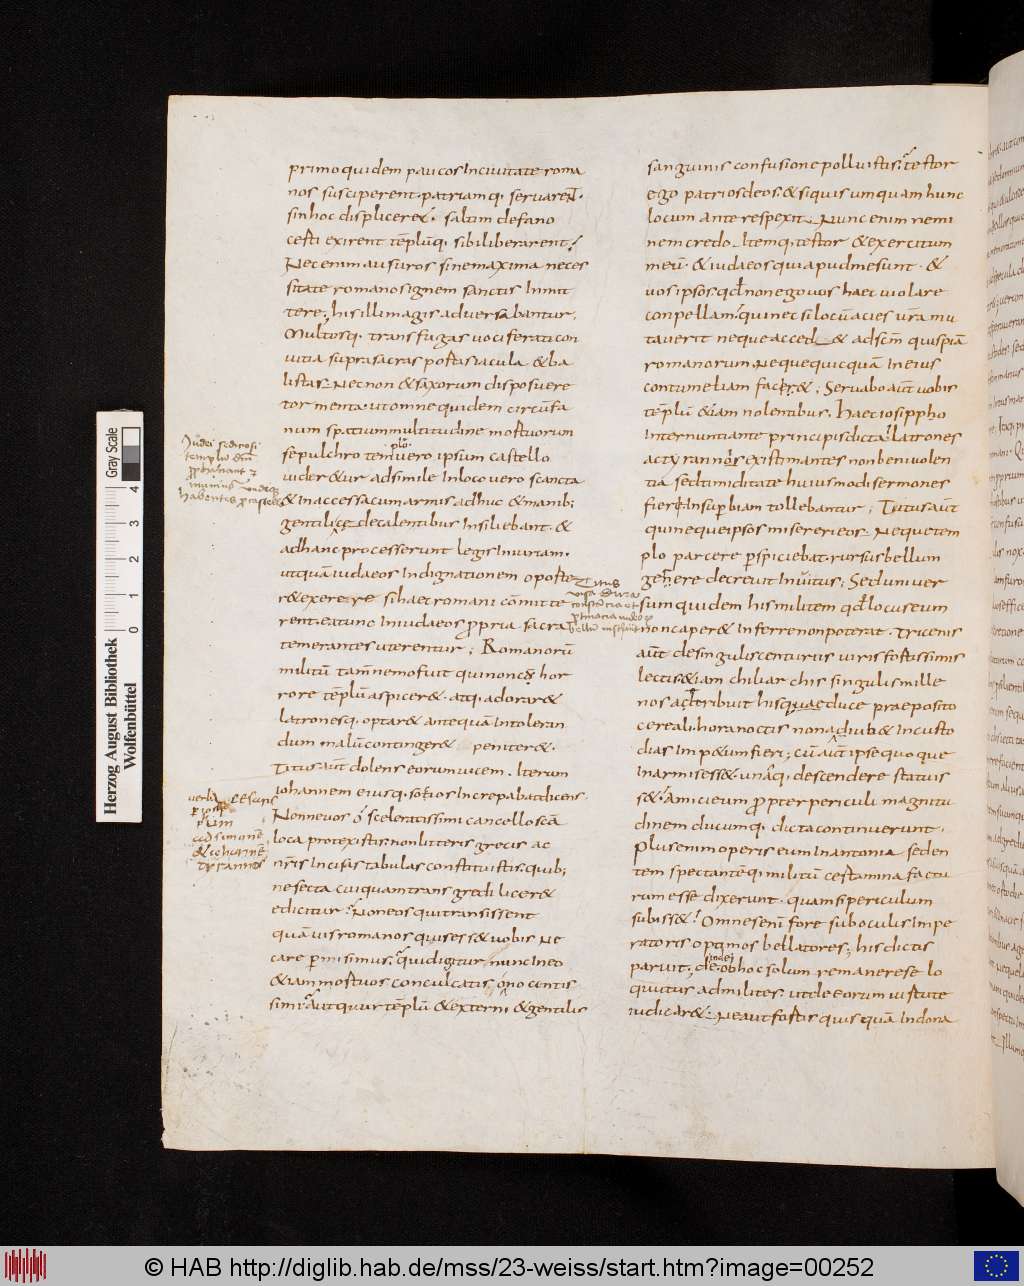 primo quidem paucos Inciuitate roma
nos susciperent. patriamq. seruarent.
sin hoc displiceret. saltim defano
cesti exirent templumq. sibi liberarent?
Nec enim ausuros sine maxima neces
sitate romanos ignem sanctis Inmit
tere; his illi magis aduersabantur,
Multosq. transfugas uociferati con
uitia supra sacras postas iacula &ba
listas. Nec non & saxorum disposuere
tormenta. ut omne quidem circūfa
num spatium multitudine mostuorum
sepulchro templū uero ipsum castello
uideretur adsimile Inloco uero sancta
& Inaccessa cum armis adhuc & manib;
gentilice decalentibus Insiliebant. &
ad hanc processerunt legis Iniuriam.
ut quam iudaeos Indignationem oposte
r& exerere si haec romani cōmitte
rent. ea tunc In iudaeos ꝓpria sacra
temerantes uterentur; Romanorū
militū tam̄ nemo fuit qui non cū hor
rore tēplū aspicer&. atq. adorar&
latronesq. optar& antequā Intoleran
dum malū conting&er& peniter&.
Titus aūt dolens eorum uicem. Iterum
iohannem eiusq. socios Increpabat dicens
Nonne uos o sceleratissimi cancellos cā
loca protexistis. non literis grecis ac
nr̄is Incisas tabulas constituistis. quib;
ne secta cuiquam transgredi licer&
edicitur? Non eos qui transissent
quam uis romanos quis ess& uobis Ne
care permisimus. quid igitur nunc Ineo
& iam mostuos conculcatis o nocentis
simi? aut quur tēplū & externi & gentilis
sanguinis confusione polluistis? testor
ego patrios deos. & siquis umquam hunc
locum ante respexit. Nunc enim nemi
nem credo. Itemq. testor & exercitum
meū. & iudaeos qui apud me sunt. &
uos ipsos. qd non ego uos haec uiolare
conpellam. quin ec si locū acies ur̄a mu
tauerit neque acced& ad scm̄ quispiā
romanorum. Neque quicquā In eius
contumeliam faci&; Seruabo aūt uobis
tēplū &iam nolentibus; Haec iosippho
Internuntiante principis dicta. latrones
ac tyrannos existimantes non beniuolen
tia sed timiditate huius modi sermones
fieri Insuperbiam tollebantur; Titus aūt
qui neque ipsos misereri eos. Neque tem
plo parcere perspiciebat. rursus bellum
gerere decreuit Inuitus; Sed uniuer
sum quidem his militem qd locus eum
non caper& Inferre non poterat. Tricenis
aūt de singulis centuriis uiris fostissimis
lectis. &iam chiliarchis singulis mille
nos ac tribuit hisque duce praeposito
cereali. hora noctis nona adiub& In custo
dias Imp&um fieri; cū aūt ipse quo que
In armis ess&. unāq. descendere statuis
s&. Amici eum propter periculi magnitu
dinem ducumq. dicta continuerunt.
Plus enim operis eum In antonia seden
tem spectante qi militū cestamina factu
rum esse dixerunt. quam si periculum
subiss&! Omnes enī fore sub oculis Impe
ratoris optimos bellatores; his dictis
paruit; de ob hoc solum remanere se lo
quutus ad milites. ut de eorum uistute
iudicar&. Ne aut fostis quis quā In dona
Iudei sediciosi
templum dn̄i
ꝓphanant &
Titus
uisa dura
uerba Cesaris
ad simonē
& iohannē
tyrannos
Herzog August Bibliothek
Wolfenbüttel
Gray Scale
0 1 2 3 4
© HAB http://diglib.hab.de/mss/23-weiss/start.htm?image=00252